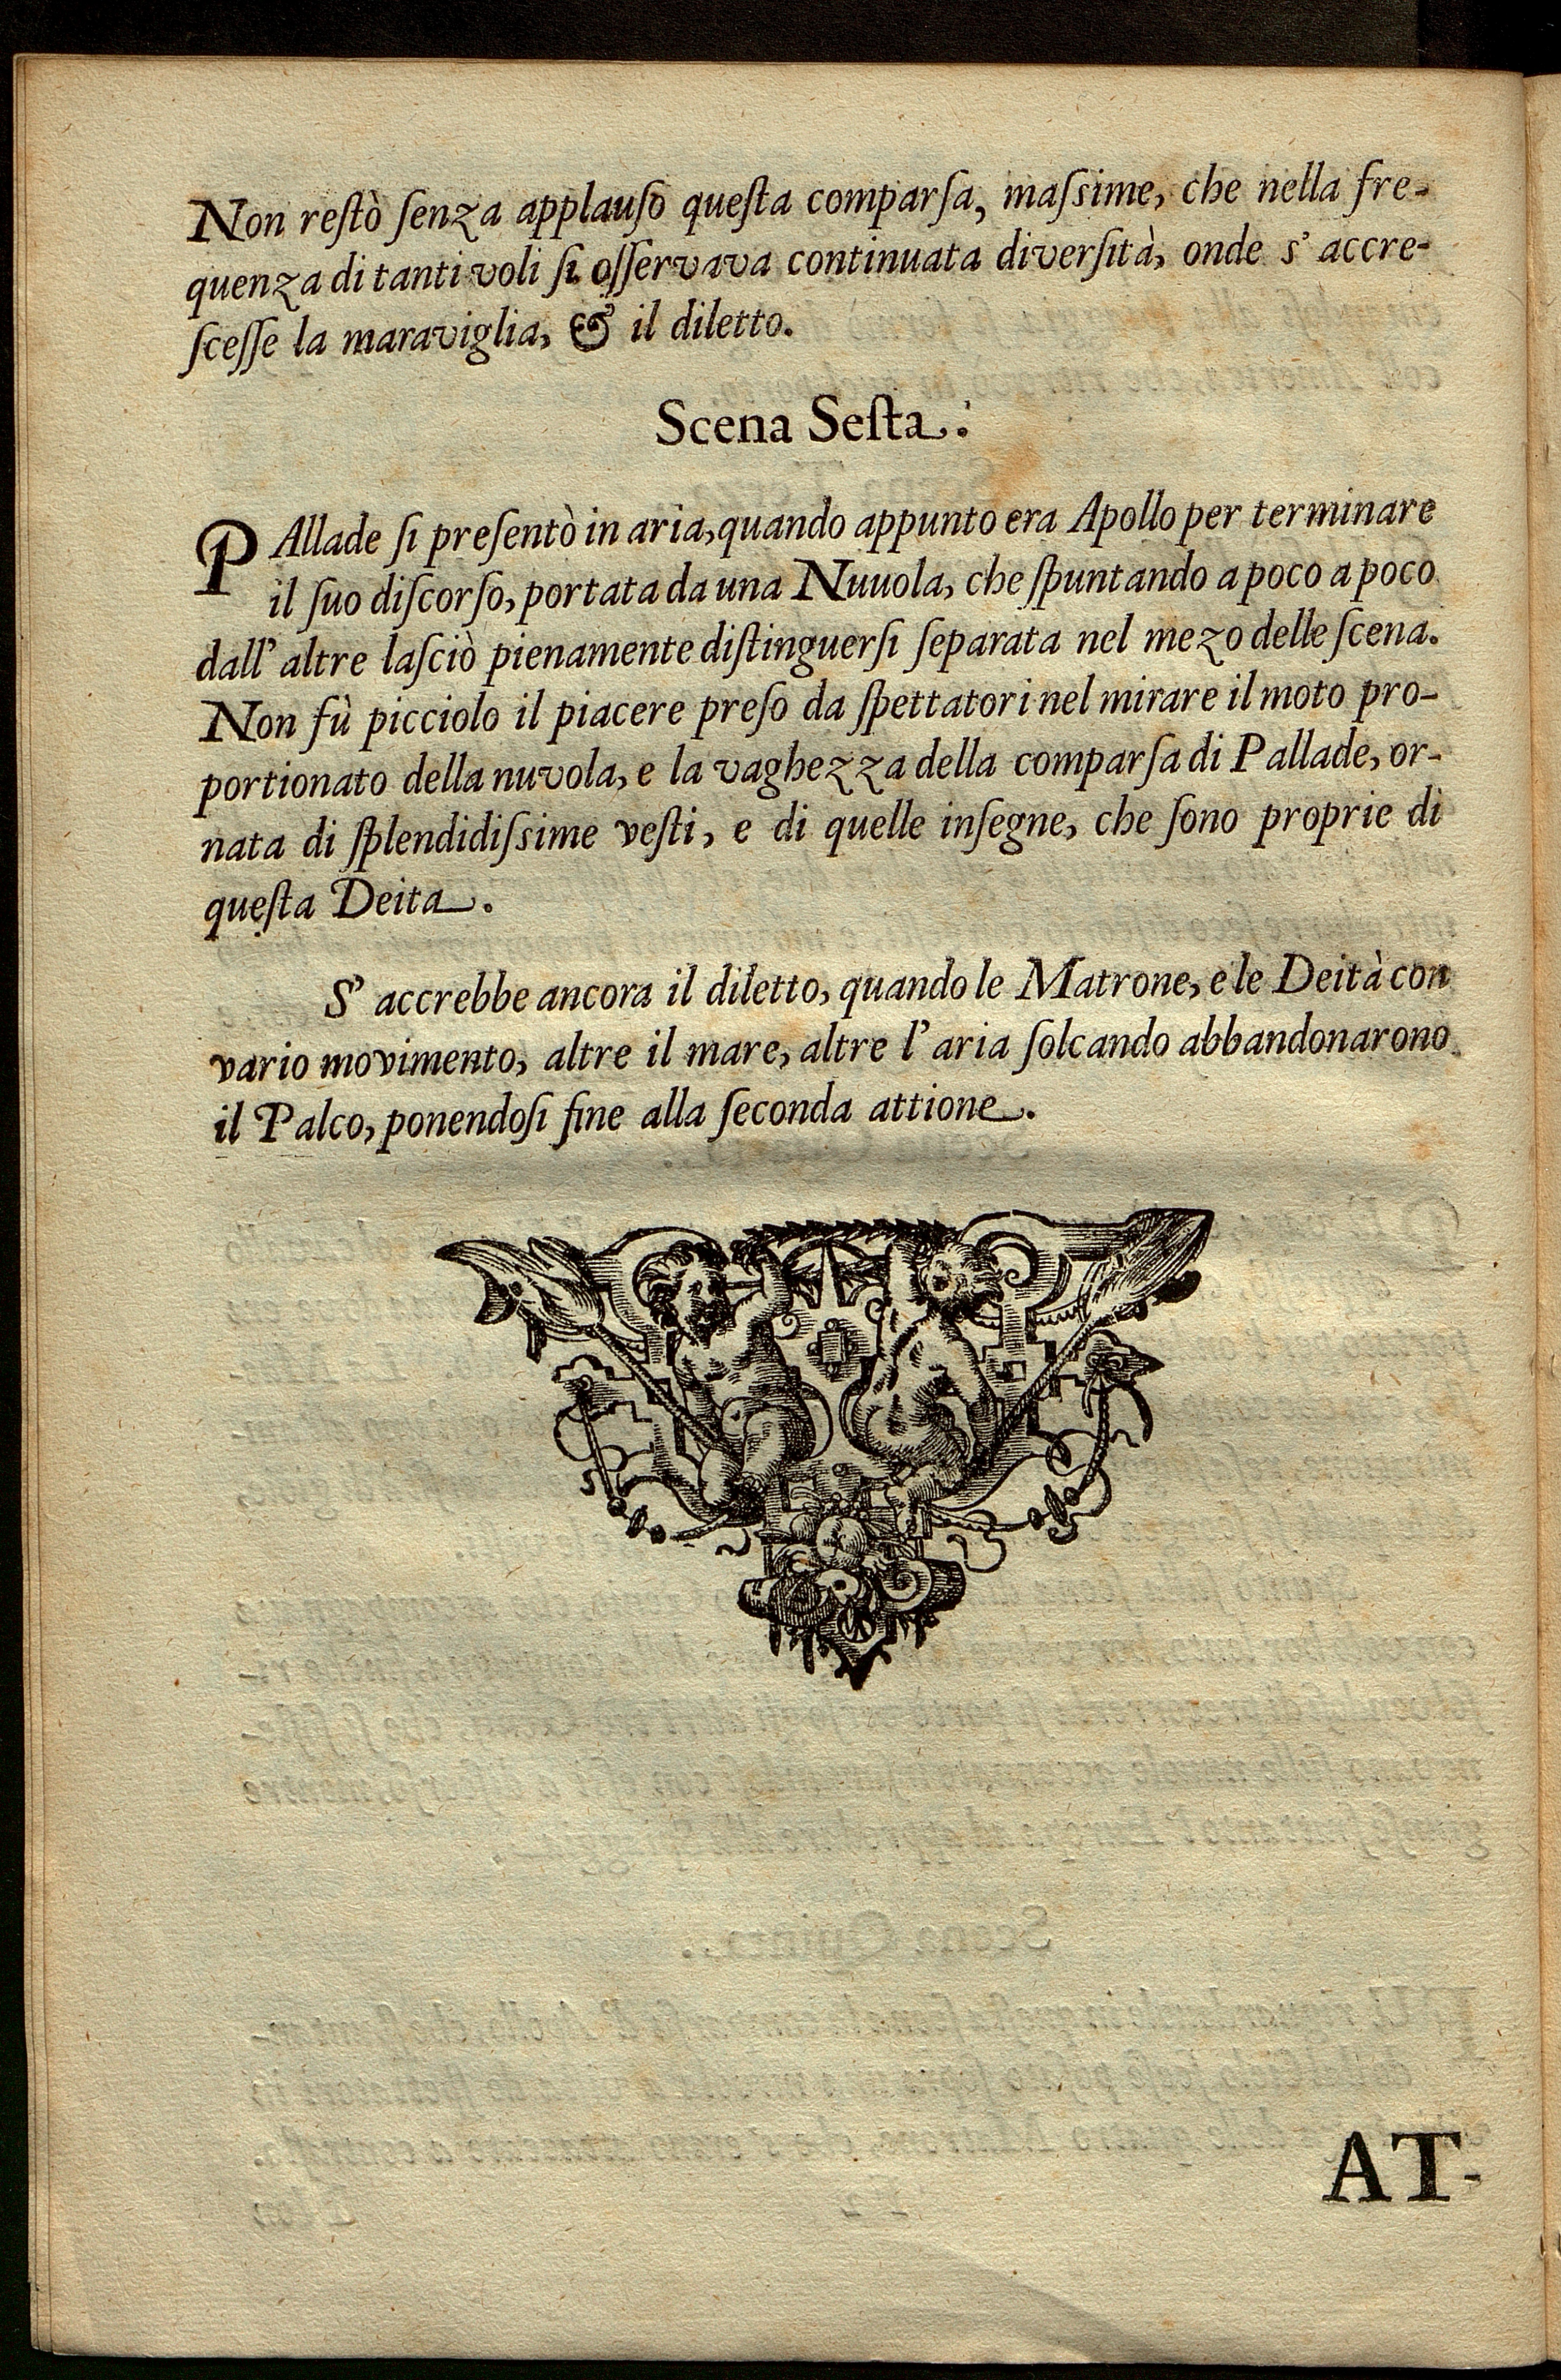 Non reſtò ſenza applauſo queſta comparſa, maſsime, che nella fre-
quenza di tanti voli ſi oſſervava continuata diverſità, onde s' accre-
ſceſſe la maraviglia, & il diletto.
Scena Seſta.
PAllade ſi preſentò in aria, quando appunto era Apollo per terminare
il ſuo diſcorſo, portata da una Nuuola, che ſpuntando a poco a poco
dall' altre laſciò pienamente diſtinguerſi ſeparata nel mezo delle ſcena.
Non fù picciolo il piacere preſo da ſpettatori nel mirare il moto pro-
portionato della nuvola, e la vaghezza della comparſa di Pallade, or-
nata di ſplendidiſsime veſti, e di quelle inſegne, che ſono proprie di
queſta Deita.
S' accrebbe ancora il diletto, quando le Matrone, e le Deità con
vario movimento, altre il mare, altre l' aria ſolcando abbandonarono
il Palco, ponendoſi fine alla ſeconda attione.
AT-